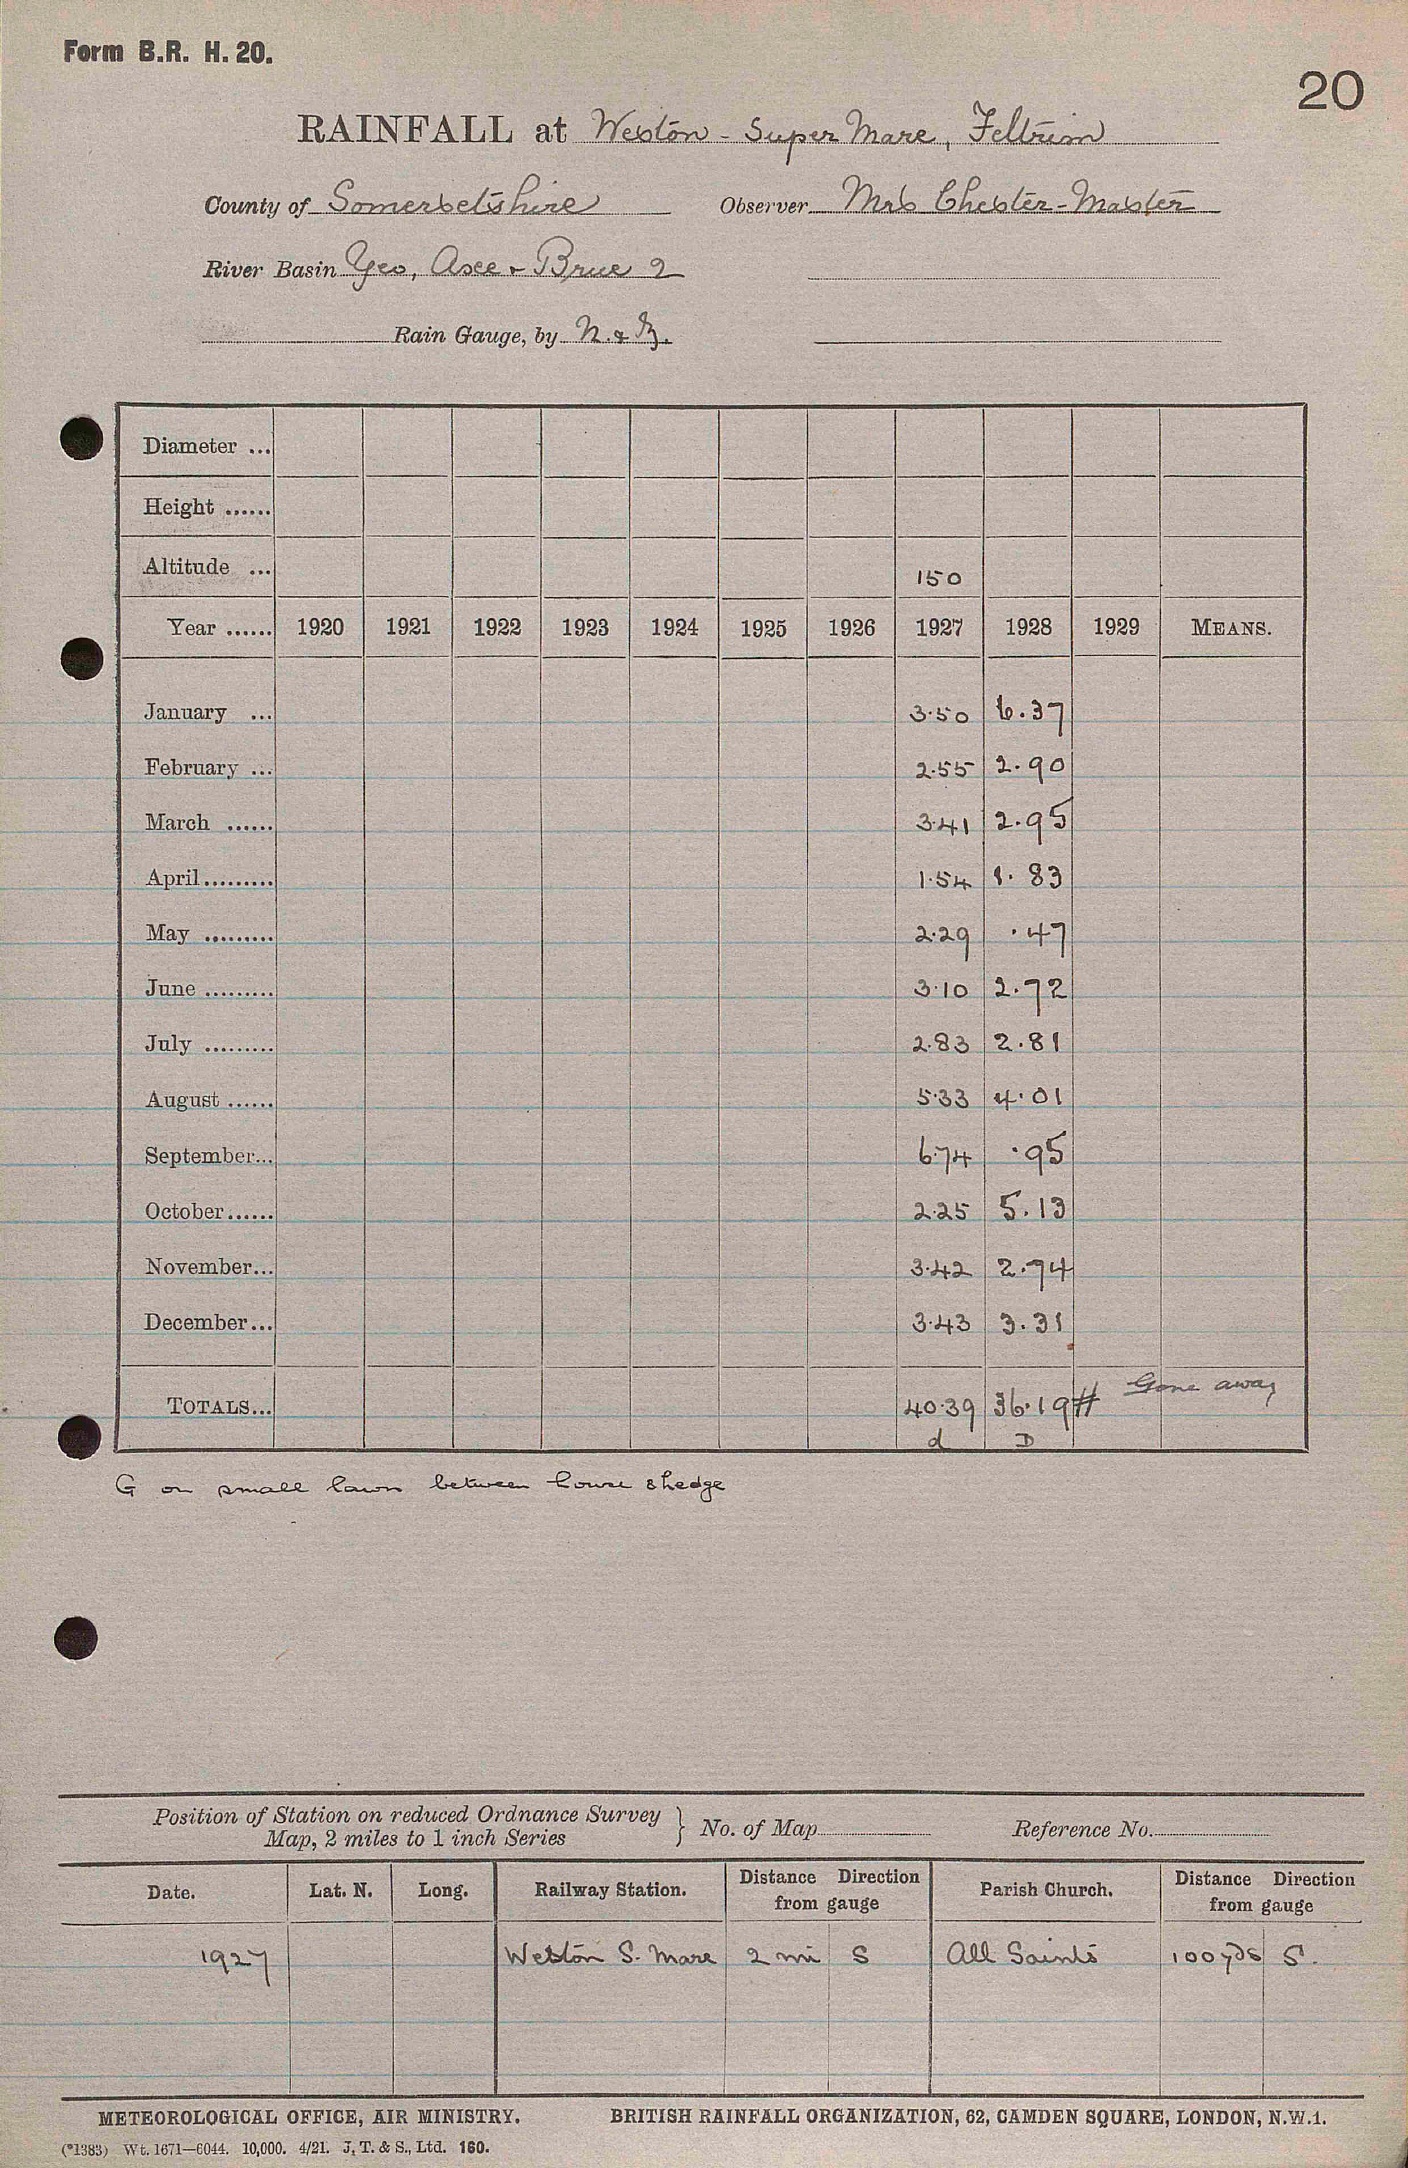 Form B.R. H. 20.
20
RAINFALL at Weston - Super Mare, Feltrim
County of Somersetshire Observer Mrs Chester-Master
River Basin Yeo, Axe & Brue 2
Rain Gauge, by N. & Z.
Diameter ...
Height ......
Altitude ... 150
Year ...... 1920 1921 1922 1923 1924 1925 1926 1927 1928 1929 MEANS.
January ... 3.50 6.37
February ... 2.55 2.90
March ...... 3.41 2.95
April......... 1.54 1.83
May ......... 2.29 .47
June ......... 3.10 2.72
July ......... 2.83 2.81
August ...... 5.33 4.01
September... 6.74 .95
October...... 2.25 5.13
November... 3.42 2.74
December... 3.43 3.31
TOTALS... 40.39 36.19# Gone away
d D
G on small lawn between house & hedge
Position of Station on reduced Ordnance Survey
Map, 2 miles to 1 inch Series } No. of Map Reference No.
Date. Lat. N. Long. Railway Station. Distance Direction from gauge Parish Church. Distance Direction from gauge
1927 Weston S. Mare 2 mi S All Saints 100 yds S.
METEOROLOGICAL OFFICE, AIR MINISTRY. BRITISH RAINFALL ORGANIZATION, 62, CAMDEN SQUARE, LONDON, N.W.1.
(*1383) Wt. 1671—6044. 10,000. 4/21. J. T. & S., Ltd. 160.